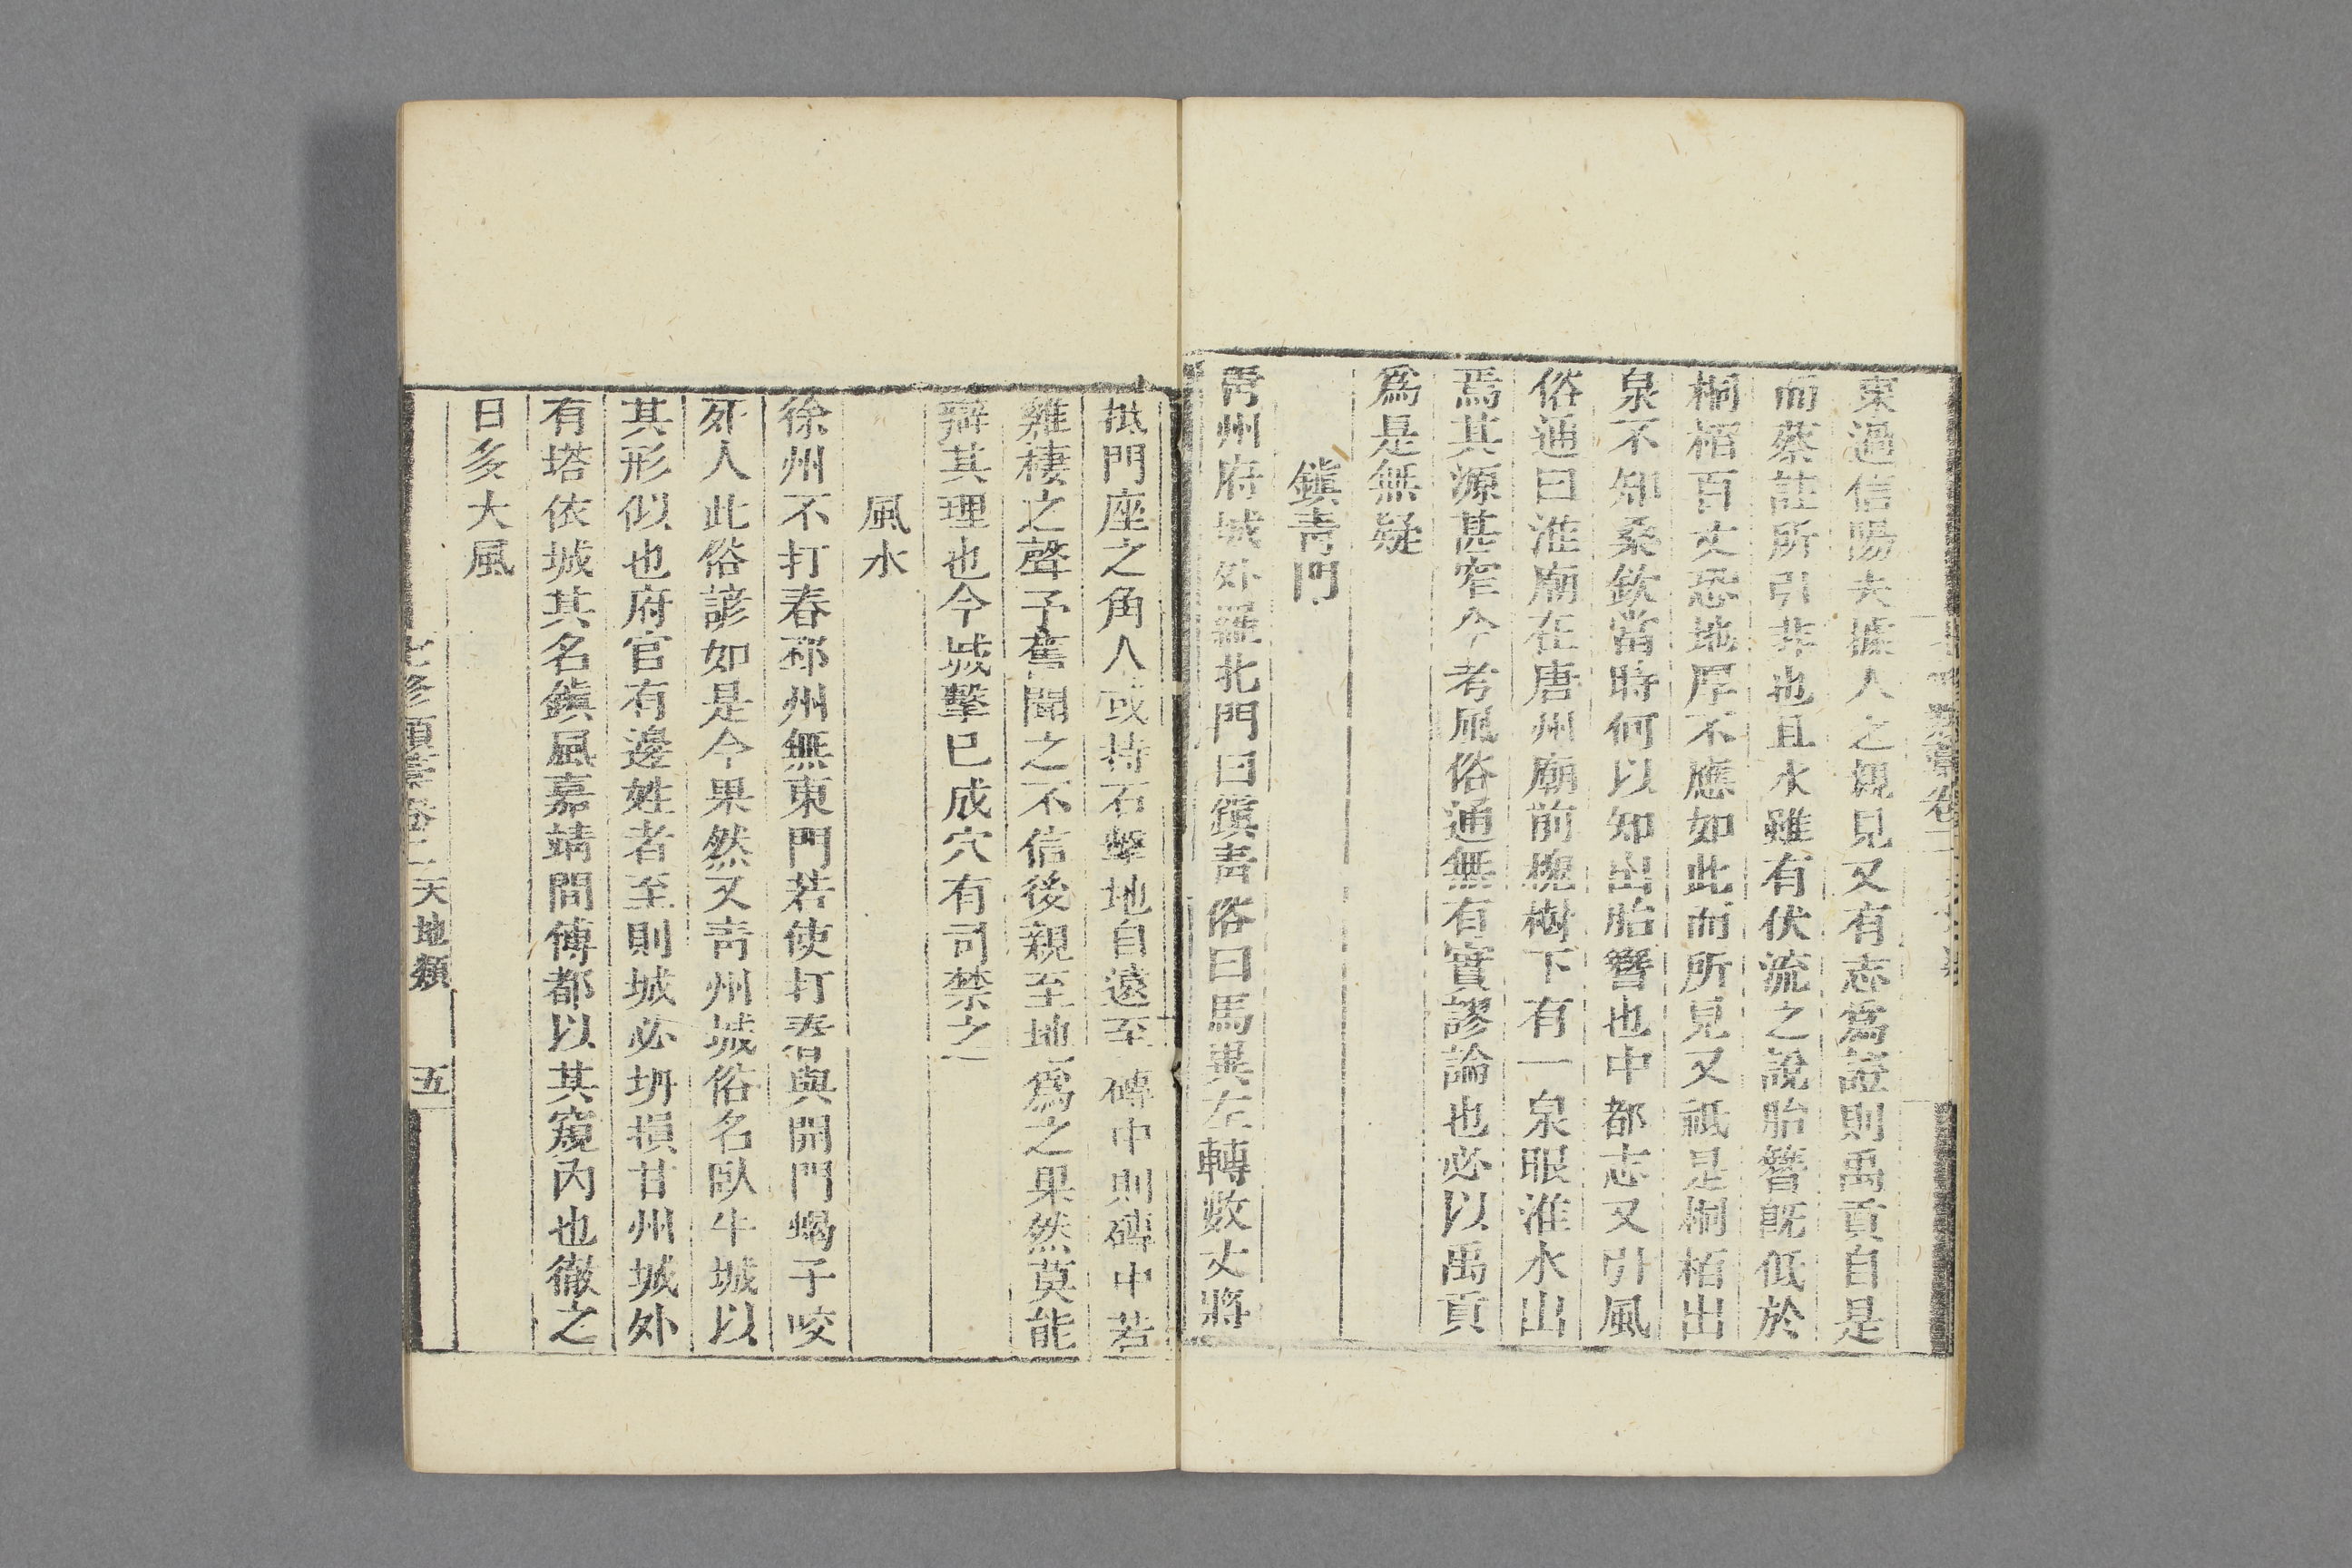 東過信陽夫據人之親見又有志爲證則禹貢自是
而蔡註所引非也且水雖有伏流之說胎簪旣低於
桐栢百丈恐地厚不應如此而所見又祗是桐栢出
泉不知桑欽當時何以知出胎簪也中都志又引風
俗通曰淮廟在唐州廟前槐樹下有一泉眼淮水出
焉其源甚窄今考風俗通無有實謬論也必以禹貢
爲是無疑
鎭靑門
靑州府城外羅北門曰鎭靑俗曰馬異左轉數丈將
抵門座之角人或持石擊地自遠至磚中則磚中若
雞棲之聲予舊聞之不信後親至地爲之果然莫能
辯其理也今城擊已成穴有司禁之
風水
徐州不打春邳州無東門若使打春與開門蝎子咬
死人此俗諺如是今果然又靑州城俗名臥牛城以
其形似也府官有邊姓者至則城必坍損甘州城外
有塔依城其名鎭風嘉靖間傅都以其窺內也徹之
日多大風
七修類藁卷二 天地類 五